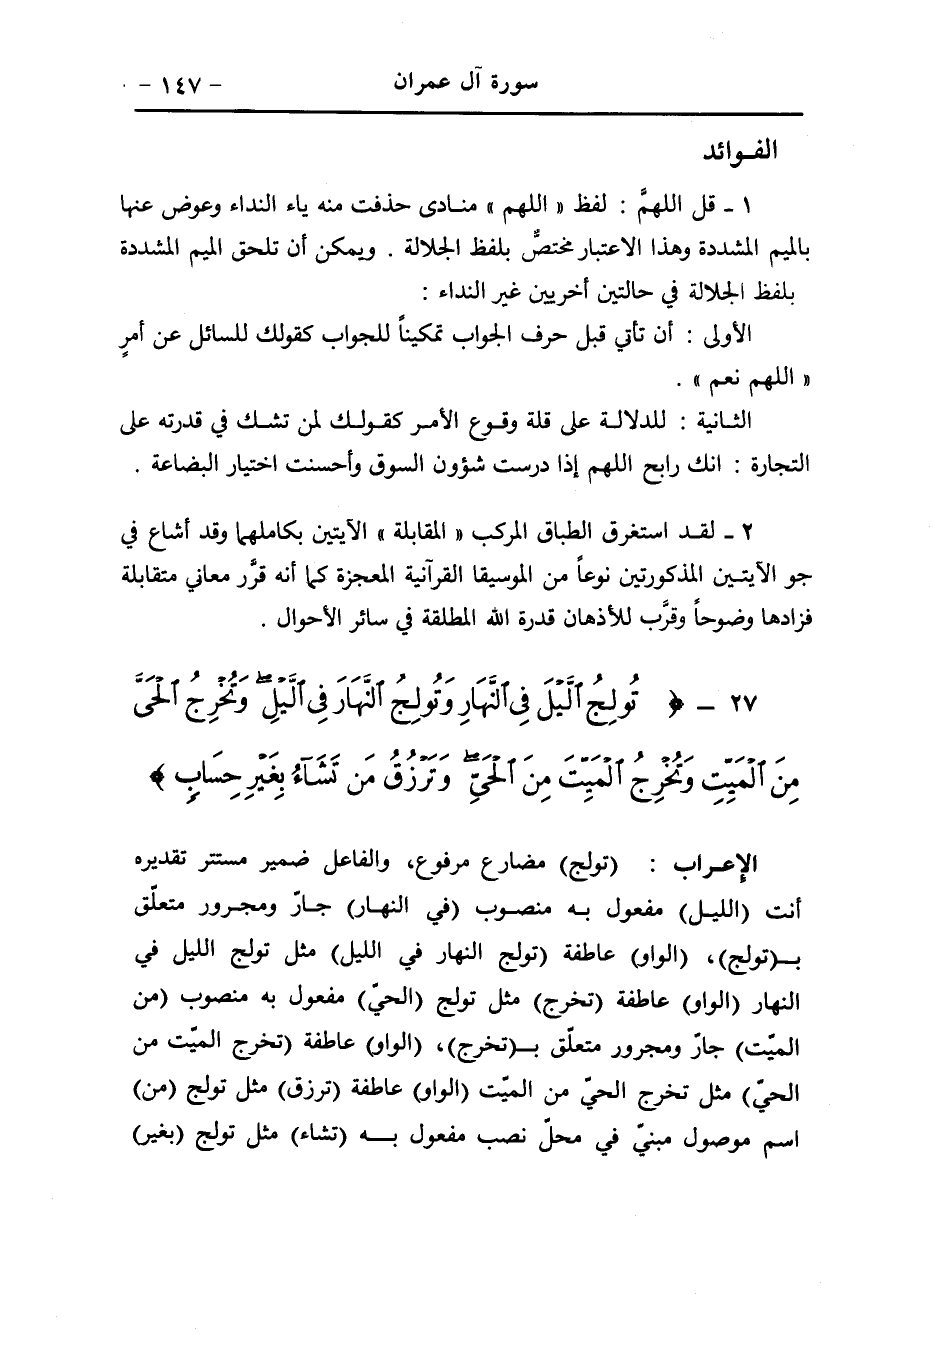 سورة آل عمران - ١٤٧ -
الفـوائد
١ ـ قل اللهمَّ : لفظ « اللهم » منـادى حذفت منه ياء النداء وعوض عنها
بالميم المشددة وهذا الاعتبار مختصٌّ بلفظ الجلالة . ويمكن أن تلحق الميم المشددة
بلفظ الجلالة في حالتين أخريين غير النداء :
الأولى : أن تأتي قبل حرف الجواب تمكيناً للجواب كقولك للسائل عن أمرٍ
« اللهم نعم » .
الثـانية : للدلالـة على قلة وقـوع الأمـر كقـولـك لمن تشـك في قدرته على
التجارة : انك رابح اللهم إذا درست شؤون السوق وأحسنت اختيار البضاعة .
٢ ـ لقـد استغرق الطباق المركب « المقابلة » الآيتين بكاملهما وقد أشاع في
جو الآيتـين المذكورتين نوعاً من الموسيقا القرآنية المعجزة كما أنه قرَّر معاني متقابلة
فزادها وضوحاً وقرَّب للأذهان قدرة الله المطلقة في سائر الأحوال .
٢٧ ـ ﴿ تُولِجُ ٱلَّيْلَ فِى ٱلنَّهَارِ وَتُولِجُ ٱلنَّهَارَ فِى ٱلَّيْلِ ۖ وَتُخْرِجُ ٱلْحَىَّ
مِنَ ٱلْمَيِّتِ وَتُخْرِجُ ٱلْمَيِّتَ مِنَ ٱلْحَىِّ ۖ وَتَرْزُقُ مَن تَشَآءُ بِغَيْرِ حِسَابٍ ﴾
الإعـراب : (تولج) مضارع مرفوع، والفاعل ضمير مستتر تقديره
أنت (الليـل) مفعول بـه منصـوب (في النهـار) جـارّ ومجـرور متعلّق
بـ(تولج)، (الواو) عاطفة (تولج النهار في الليل) مثل تولج الليل في
النهار (الواو) عاطفة (تخرج) مثل تولج (الحيّ) مفعول به منصوب (من
الميّت) جارّ ومجرور متعلّق بـ(تخرج)، (الواو) عاطفة (تخرج الميّت من
الحيّ) مثل تخرج الحيّ من الميّت (الواو) عاطفة (ترزق) مثل تولج (من)
اسم موصول مبنيّ في محلّ نصب مفعول بـه (تشاء) مثل تولج (بغير)